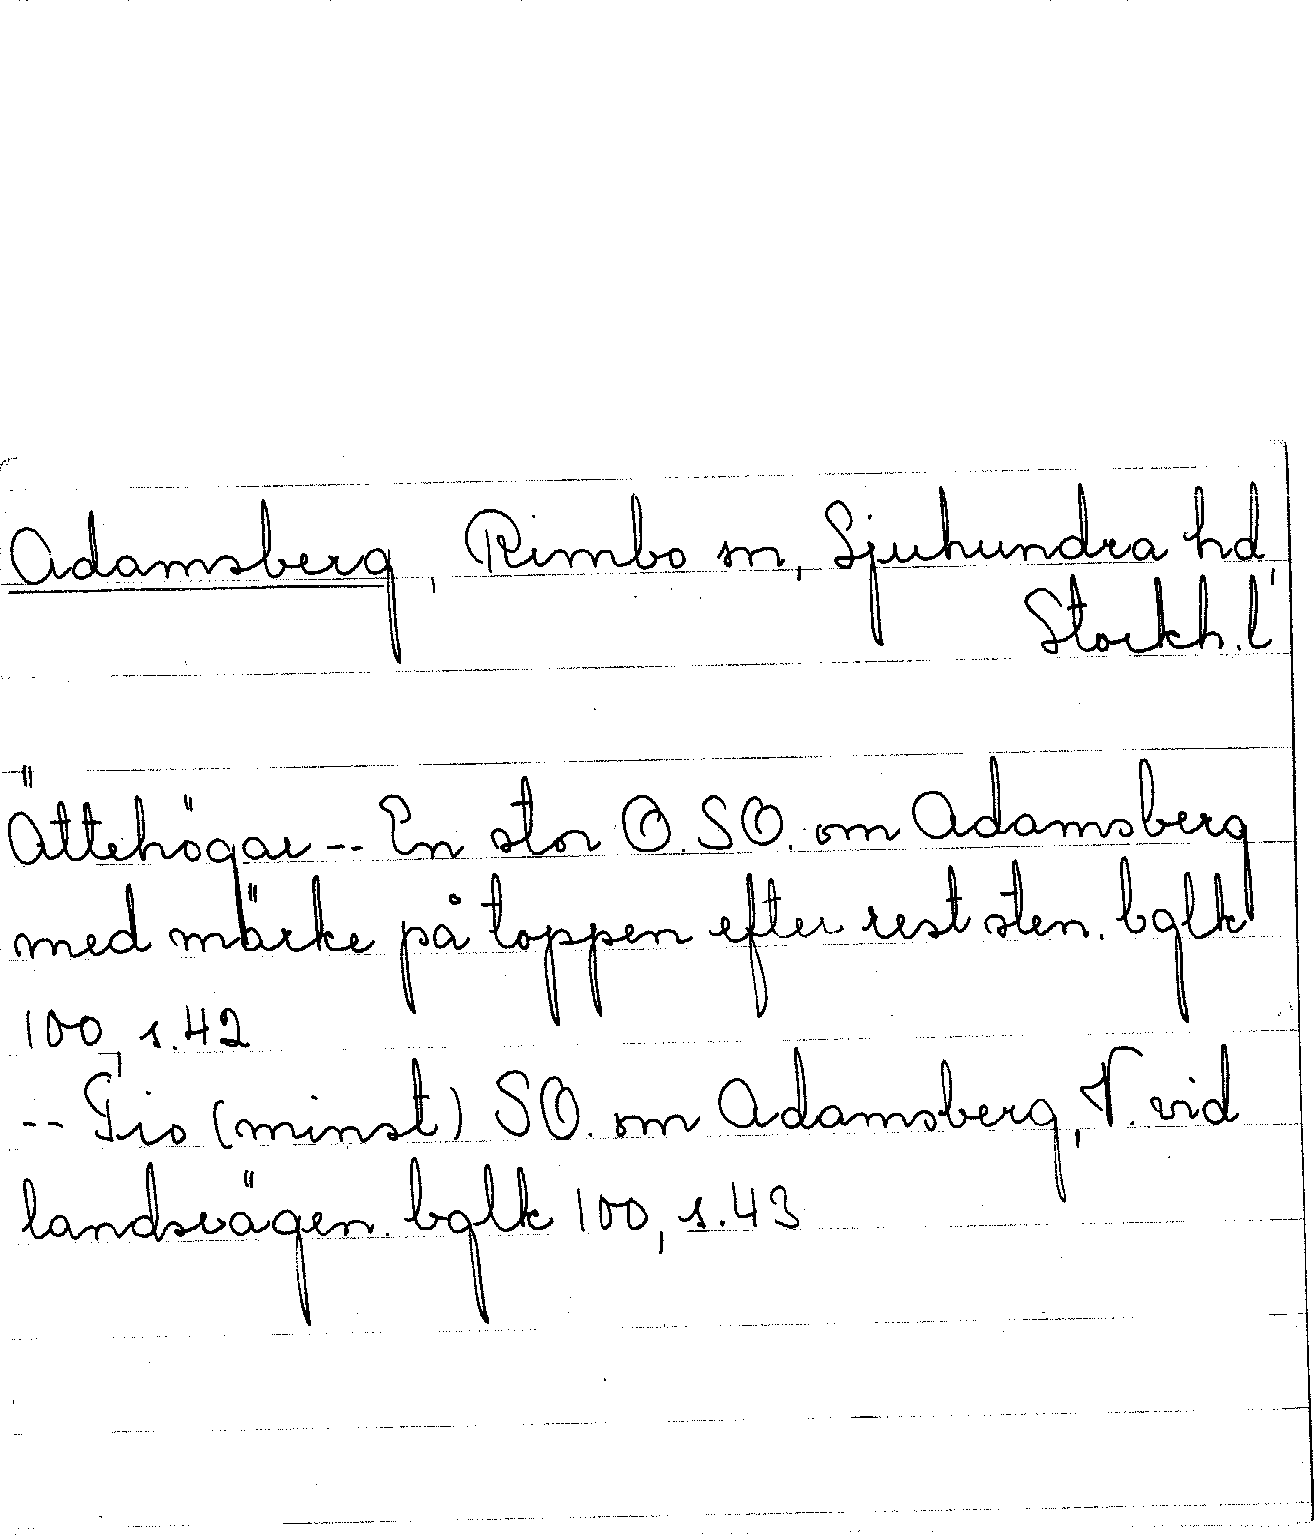 Adamsberg, Rimbo sn, Sjuhundra hd,
Stockh. l
Ättehögar -- En stor O. SO. om Adamsberg
med märke på toppen efter rest sten. bglk
100, s. 42
-- Tio (minst) SO. om Adamsberg, V. vid
landsvägen. bglk 100, s. 43